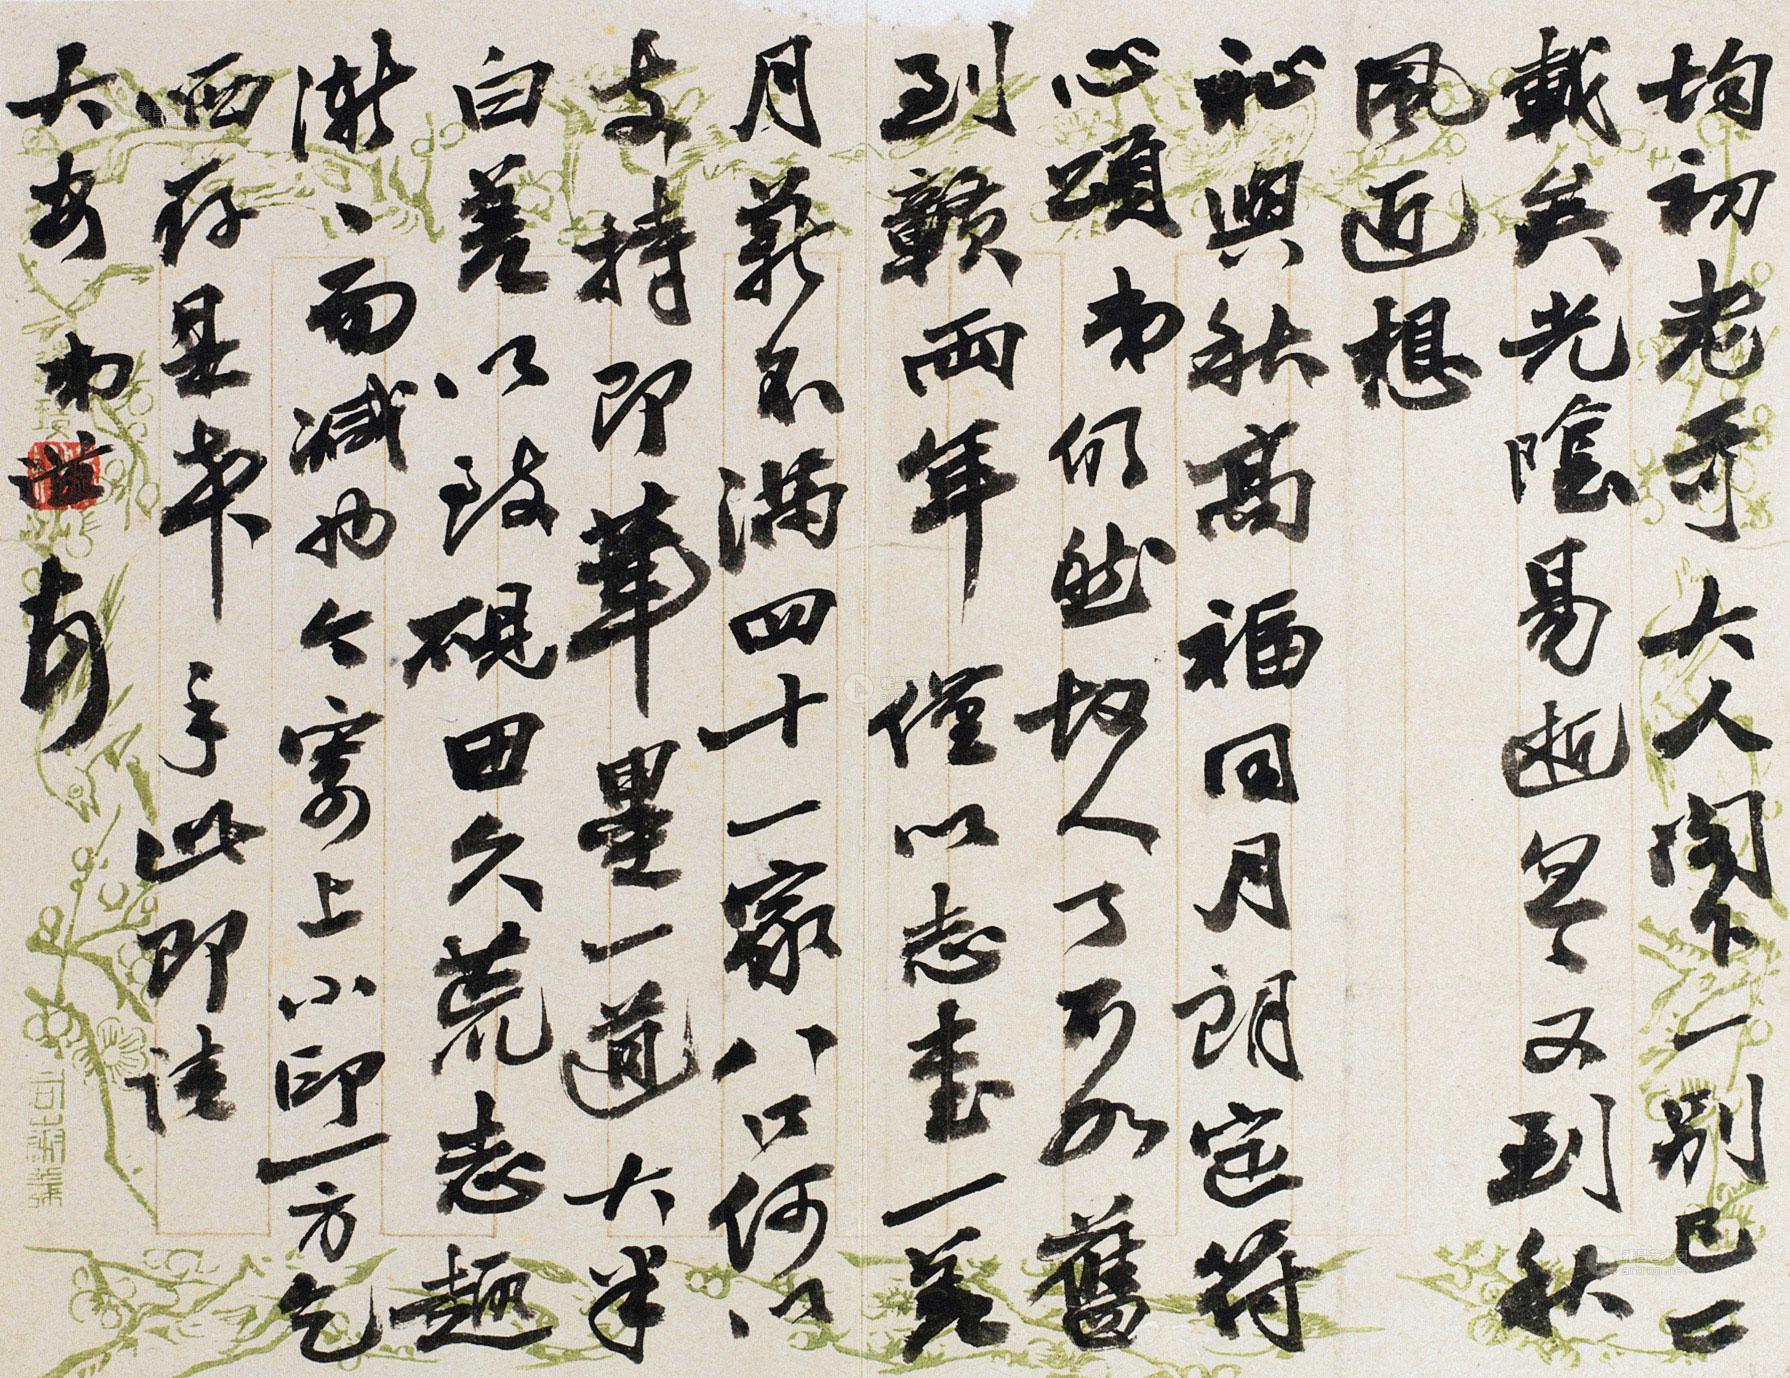 均初老哥大人閣下一別已二
載矣光陰易逝曶〻又到秋
風近想
祉與秋高福同月朗定符
心頌弟仍然故人了不如舊
到贛兩年僅以志書一差
月薪不滿四十一家八口何以
支持即筆墨一道大半
白差以致硯田久荒志趣
漸〻而減也今寄上小印一方乞
哂存是幸手此即請
大安弟謙頓首